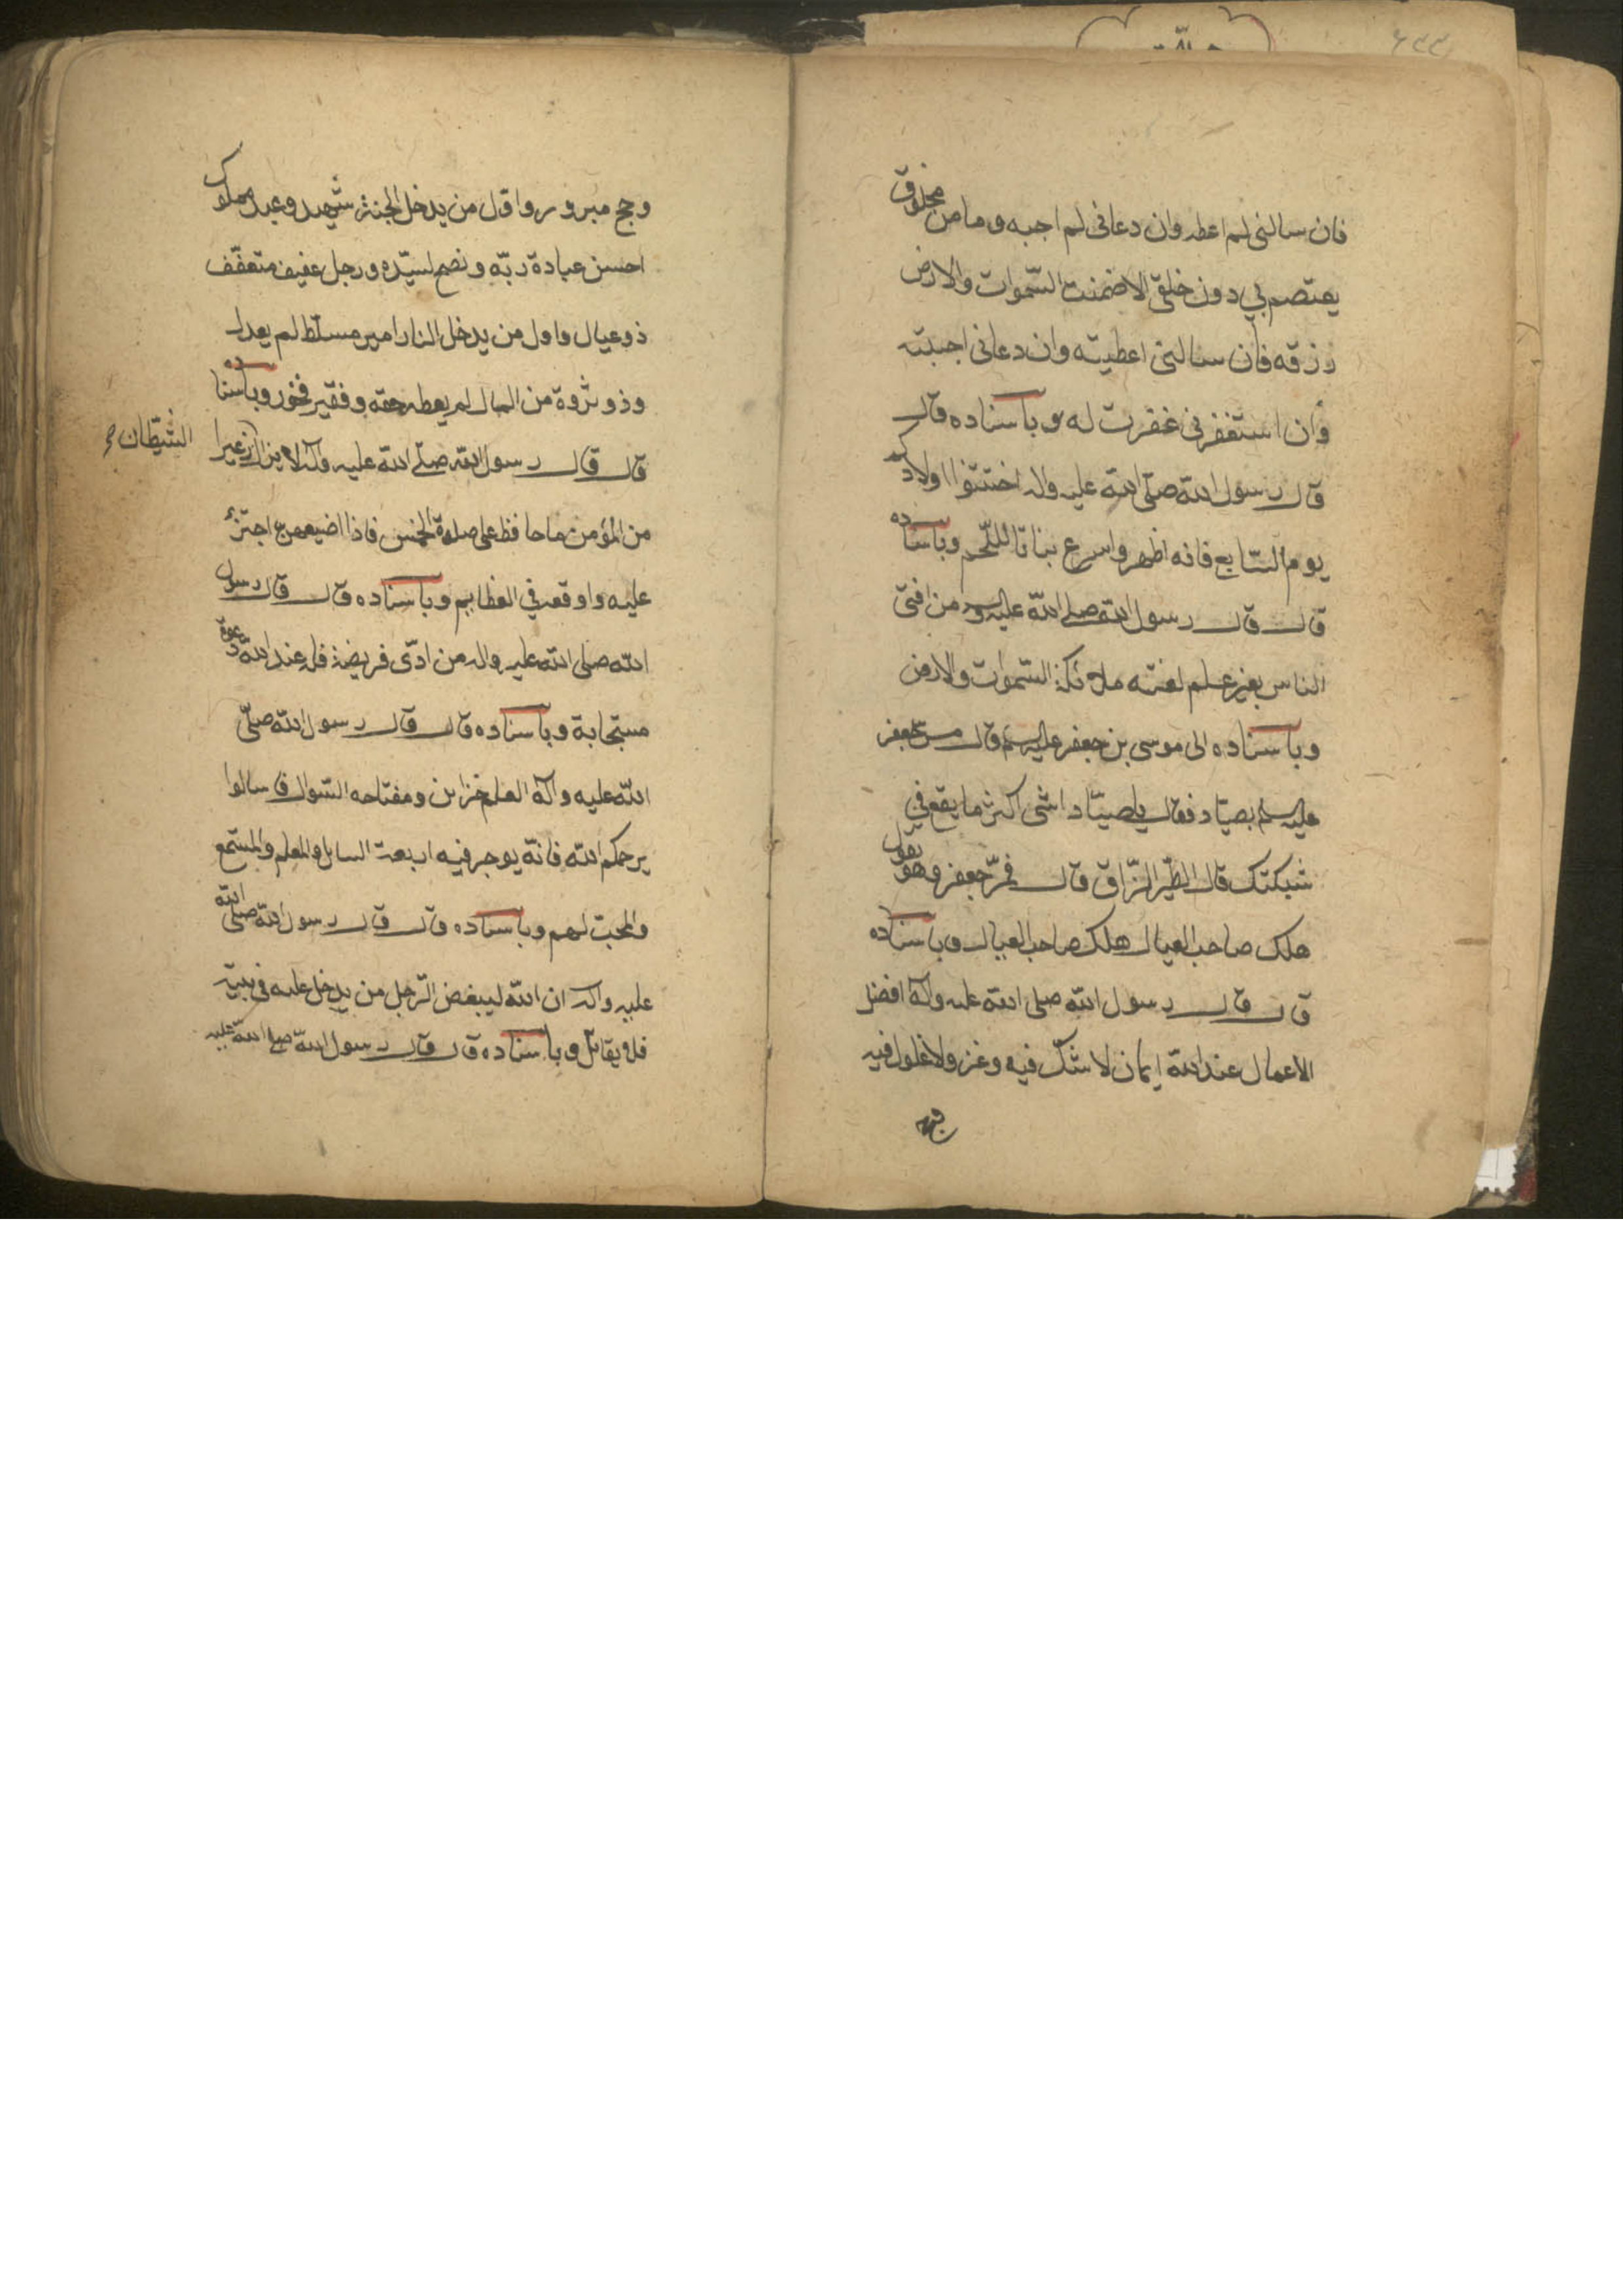 فان سالنی لم اعطه وان دعانی لم اجبه وما من مخلوق
یعتصم بی دون خلقی الا ضمنت السّموات والارض
رزقه فان سالنی اعطیته وان دعانی اجبته
وان استغفرنی غفرت له وباسناده قال
قال رسول الله صلّی الله علیه واله اختتنوا اولادکم
یوم السّابع فانه اطهر واسرع نباتا للّحم وباسناده
قال قال رسول الله صلی الله علیه واله من افتی
الناس بغیر علم لعنته ملائکة السّموات والارض
وباسناده الی موسی بن جعفر علیه السلم قال مرّ جعفر
علیه السلم بصیّاد فقال یا صیّاد ای شی اکثر ما یقع فی
شبکتک قال الطّیر الزّاق قال فمرّ جعفر وهو یقول
هلک صاحب العیال هلک صاحب العیال وباسناده
قال قال رسول الله صلی الله علیه وآله افضل
الاعمال عند الله ایمان لا شک فیه وغزو لا غلول فیه
وحج مبرور واوّل من یدخل الجنة شهید وعبد مملوک
احسن عبادة ربّه ونصح لسیّده ورجل عفیف متعفّف
ذو عیال واول من یدخل النار امیر مسلّط لم یعدل
وذو ثروة من المال لم یعطه حقه وفقیر فخور وباسناده
قال قال رسول الله صلّی الله علیه وآله لا یزال ذعرا
الشیطان
من المؤمن ما حافظ علی صلوة الخمس فاذا اضیعهن اجترئ
علیه واوقعه فی العظایم وباسناده قال قال رسول
الله صلی الله علیه واله من ادّی فریضة فله عند الله دعوة
مستجابة وباسناده قال قال رسول الله صلّی
الله علیه وآله العلم خزاین ومفتاحه السّوال فاسالوا
یرحمکم الله فانّه یوجر فیه اربعة السایل والمعلم والمستمع
والمحبّ لهم وباسناده قال قال رسول الله صلی الله
علیه وآله ان الله لیبغض الرّجل من یدخل علیه فی بیته
فلا یقاتل وباسناده قال قال رسول الله صلی الله علیه